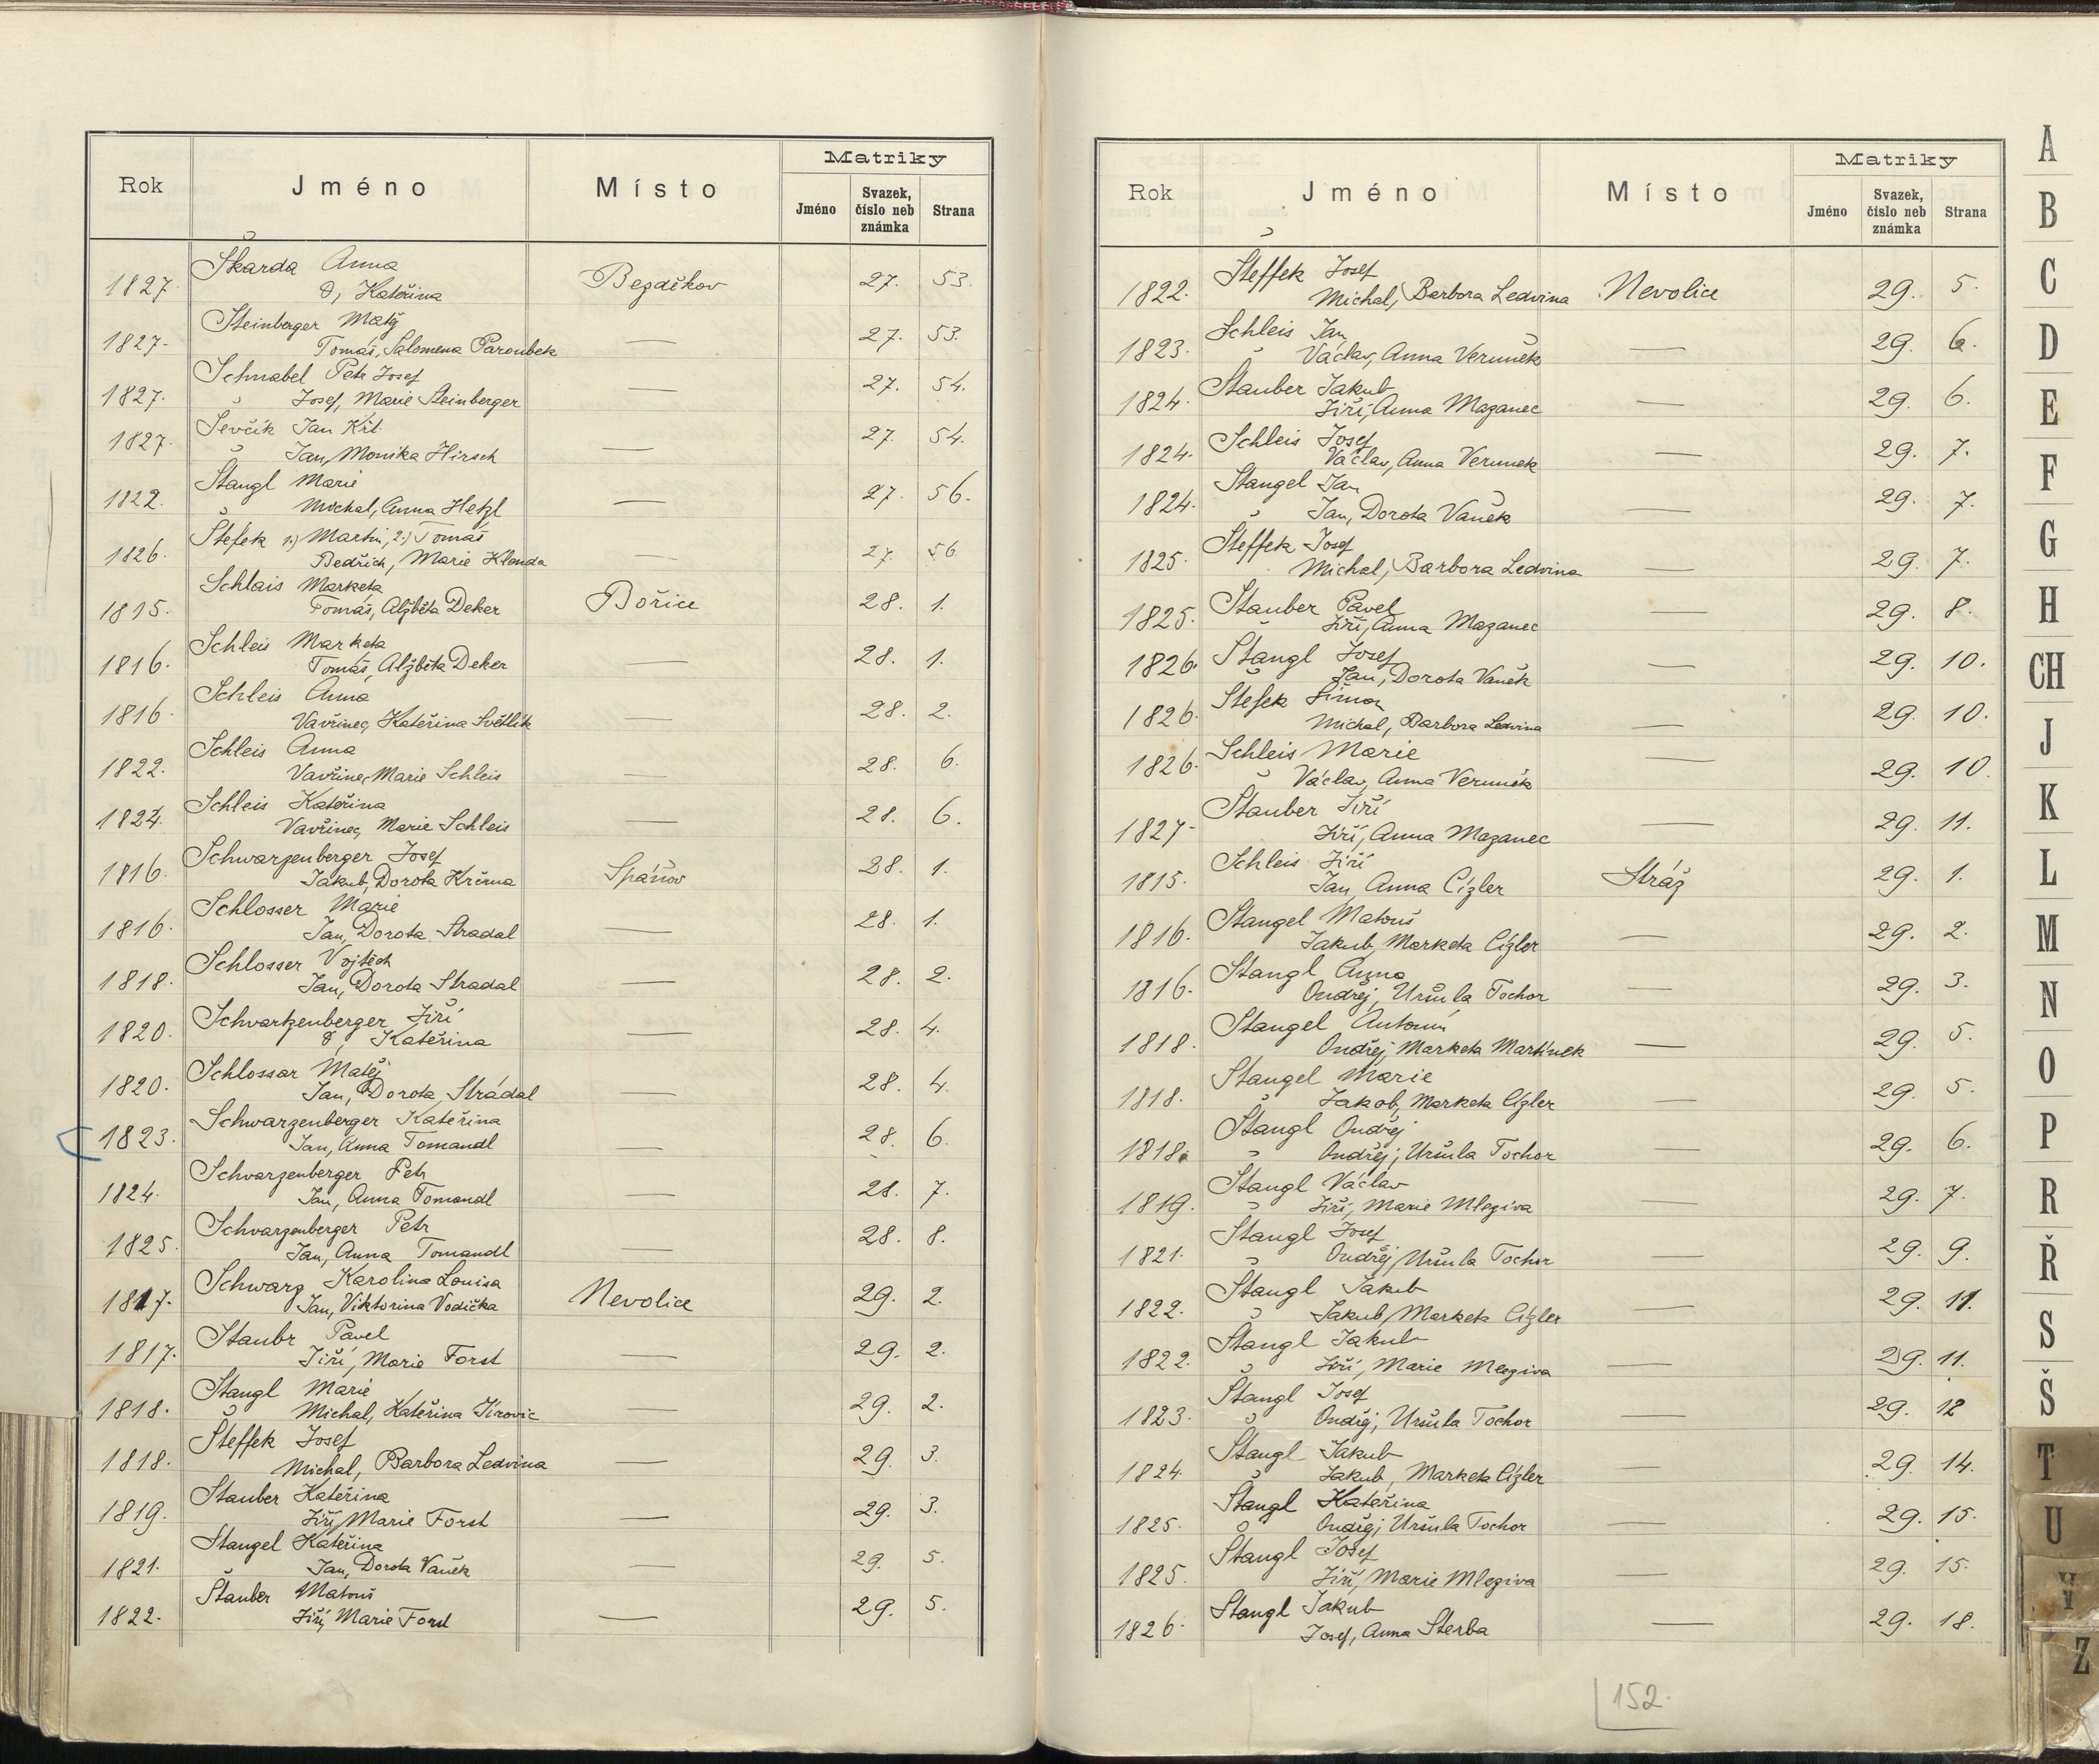 Matriky
Rok Jméno Místo Jméno Svazek, číslo neb známka Strana
Škarda Anna
1827. Kateřina Bezděkov 27. 53.
Steinberger Matěj
1827. Tomáš, Salomena Paroubek — 27. 53.
Schnabel Petr Josef
1827. Josef, Marie Steinberger — 27. 54.
Ševčík Jan Křt.
1827. Jan, Monika Hirsch — 27. 54.
Štangl Marie
1822. Michal, Anna Hetzl — 27. 56.
Štefek 1.) Martin, 2.) Tomáš
1826. Bedřich, Marie Klenda — 27. 56.
Schlais Marketa
1815. Tomáš, Alžběta Deker Bořice 28. 1.
Schleis Marketa
1816. Tomáš, Alžběta Deker — 28. 1.
Schleis Anna
1816. Vavřinec, Kateřina Světlík — 28. 2.
Schleis Anna
1822. Vavřinec, Marie Schleis — 28. 6.
Schleis Kateřina
1824. Vavřinec, Marie Schleis — 28. 6.
Schwarzenberger Josef
1816. Jakub, Dorota Krčma Spáňov 28. 1.
Schlosser Marie
1816. Jan, Dorota Stradal — 28. 1.
Schlosser Vojtěch
1818. Jan, Dorota Stradal — 28. 2.
Schvartzenberger Jiří
1820. Kateřina — 28. 4.
Schlossar Matěj
1820. Jan, Dorota, Strádal — 28. 4.
Schwarzenberger Kateřina
1823. Jan, Anna Tomandl — 28. 6.
Schvarzenberger Petr
1824. Jan, Anna Tomandl — 28. 7.
Schvarzenberger Petr
1825. Jan, Anna Tomandl — 28. 8.
Schwarz Karolina Louisa
1817. Jan, Viktorina Vodička Nevolice 29. 2.
Staubr Pavel
1817. Jiří, Marie Forst — 29. 2.
Stangl Marie
1818. Michal, Kateřina Jírovic — 29. 2.
Šteffek Josef
1818. Michal, Barbora Ledvina — 29. 3.
Stauber Kateřina
1819. Jiří, Marie Forst — 29. 3.
Stangel Kateřina
1821. Jan, Dorota Vaněk — 29. 5.
Štauber Matouš
1822. Jiří, Marie Forst — 29. 5.
Matriky
Rok Jméno Místo Jméno Svazek, číslo neb známka Strana
Šteffek Josef
1822. Michal, Barbora Ledvina Nevolice 29. 5.
Schleis Jan
1823. Václav, Anna Veruněk — 29. 6.
Štauber Jakub
1824. Jiří, Anna Mazanec — 29. 6.
Schleis Josef
1824. Václav, Anna Verunek — 29. 7.
Stangel Jan
1824. Jan, Dorota Vaněk — 29. 7.
Šteffek Josef
1825. Michal, Barbora Ledvina — 29. 7.
Stauber Pavel
1825. Jiří, Anna Mazanec — 29. 8.
Štangl Josef
1826. Jan, Dorota Vaněk — 29. 10.
Štefek Šimon
1826. Michal, Barbora Ledvina — 29. 10.
Schleis Marie
1826. Václav, Anna Veruněk — 29. 10.
Štauber Jiří
1827. Jiří, Anna Mazanec — 29. 11.
Schleis Jiří
1815. Jan, Anna Cízler Stráž 29. 1.
Stangel Matouš
1816. Jakub, Marketa Cízler — 29. 2.
Stangl Anna
1816. Ondřej, Uršula Tochor — 29. 3.
Stangel Antonín
1818. Ondřej, Marketa Martínek — 29. 5.
Stangel Marie
1818. Jakob, Marketa Cízler — 29. 5.
Štangl Ondřej
1818. Ondřej, Uršula Tochor — 29. 6.
Štangl Václav
1819. Jiří, Marie Mleziva — 29. 7.
Štangl Josef
1821. Ondřej, Uršula Tochor — 29. 9.
Štangl Jakub
1822. Jakub, Marketa Cízler — 29. 11.
Štangl Jakub
1822. Jiří, Marie Mleziva — 29. 11.
Štangl Josef
1823. Ondřej, Uršula Tochor — 29. 12
Štangl Jakub
1824. Jakub, Marketa Cízler — 29. 14.
Štangl Kateřina
1825. Ondřej, Uršula Tochor — 29. 15.
Štangl Josef
1825. Jiří, Marie Mleziva — 29. 15.
Stangl Jakub
1826. Josef, Anna Sterba — 29. 18.
152.
A
B
C
D
E
F
G
H
CH
J
K
L
M
N
O
P
R
Ř
S
Š
T
U
V
Z